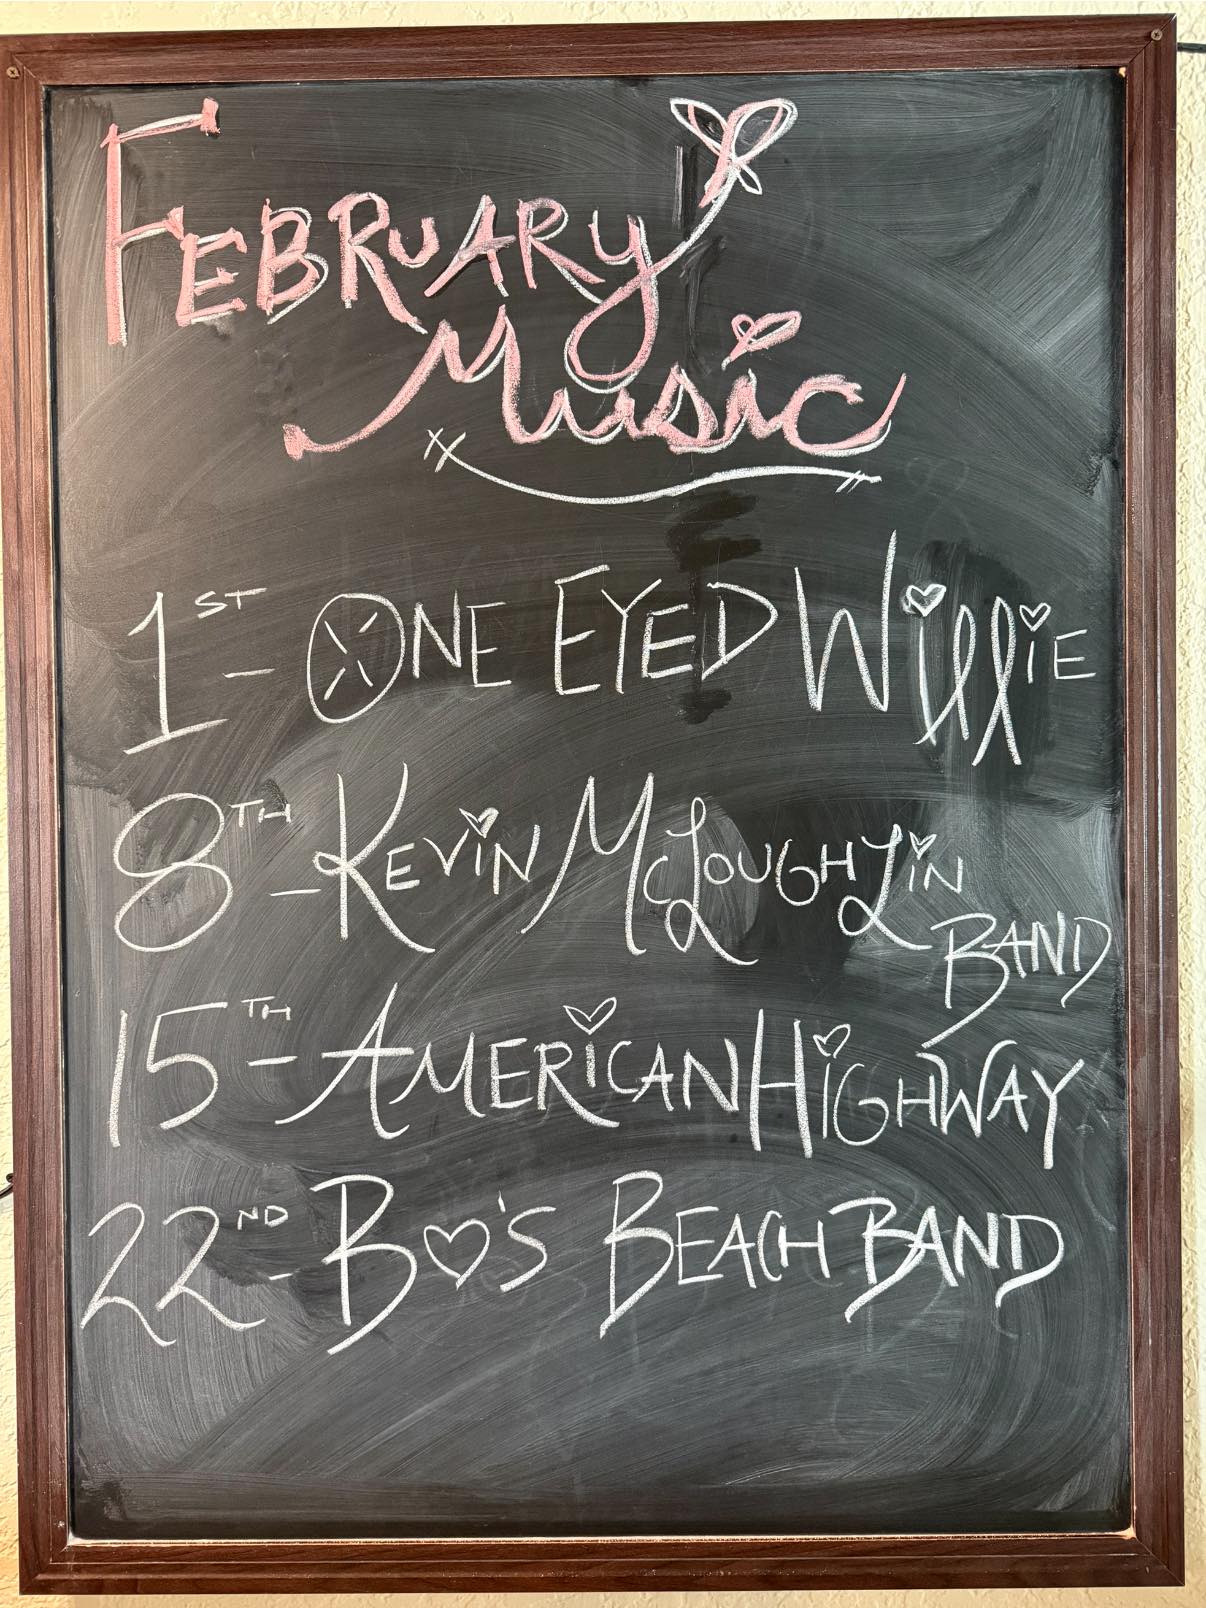 February
Music
1ST - One Eyed Willie
8TH - Kevin McLoughlin
Band
15TH - American Highway
22ND - Bo's Beach Band